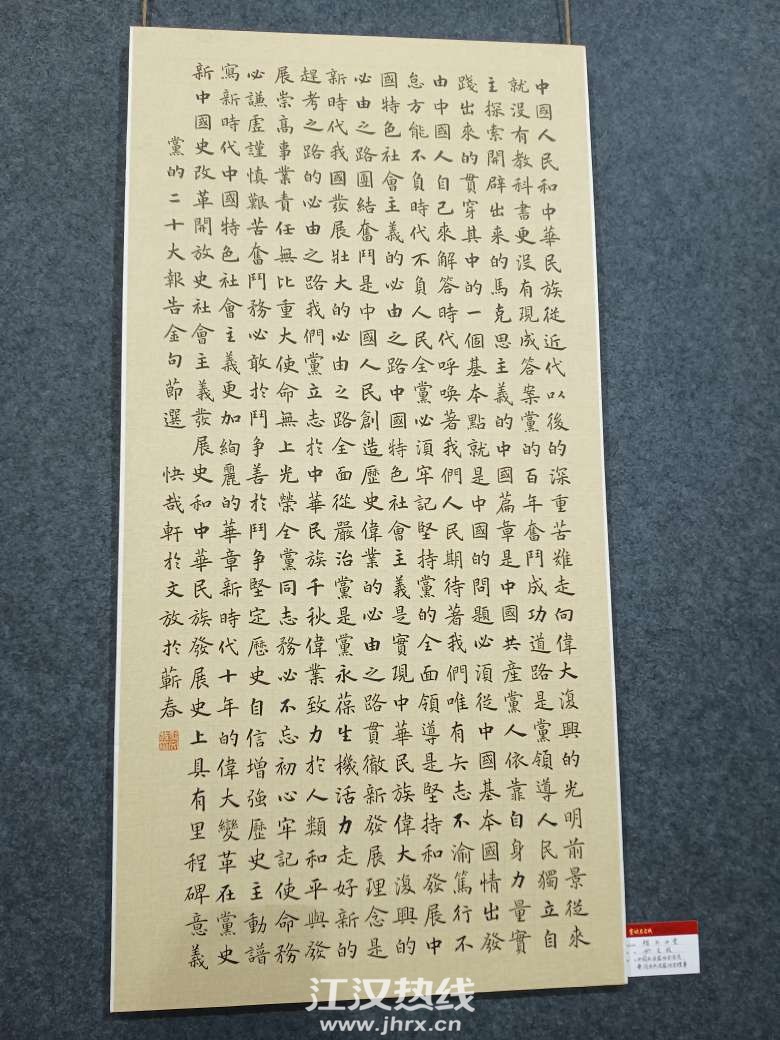 中國人民和中華民族從近代以後的深重苦難走向偉大復興的光明前景從來
就沒有教科書更沒有現成答案黨的百年奮鬥成功道路是黨領導人民獨立自
主探索開辟出來的馬克思主義的中國篇章是中國共產黨人依靠自身力量實
踐出來的貫穿其中的一個基本點就是中國的問題必須從中國基本國情出發
由中國人自己來解答時代呼喚著我們人民期待著我們唯有矢志不渝篤行不
怠方能不負時代不負人民全黨必須牢記堅持黨的全面領導是堅持和發展中
國特色社會主義的必由之路中國特色社會主義是實現中華民族偉大復興的
必由之路團結奮鬥是中國人民創造歷史偉業的必由之路貫徹新發展理念是
新時代我國發展壯大的必由之路全面從嚴治黨是黨永葆生機活力走好新的
趕考之路的必由之路我們黨立志於中華民族千秋偉業致力於人類和平與發
展崇高事業責任無比重大使命無上光榮全黨同志務必不忘初心牢記使命務
必謙虛謹慎艱苦奮鬥務必敢於鬥爭善於鬥爭堅定歷史自信增強歷史主動譜
寫新時代中國特色社會主義更加絢麗的華章新時代十年的偉大變革在黨史
新中國史改革開放史社會主義發展史和中華民族發展史上具有里程碑意義
黨的二十大報告金句節選 快哉軒於文放於蘄春
江汉热线
www.jhrx.cn